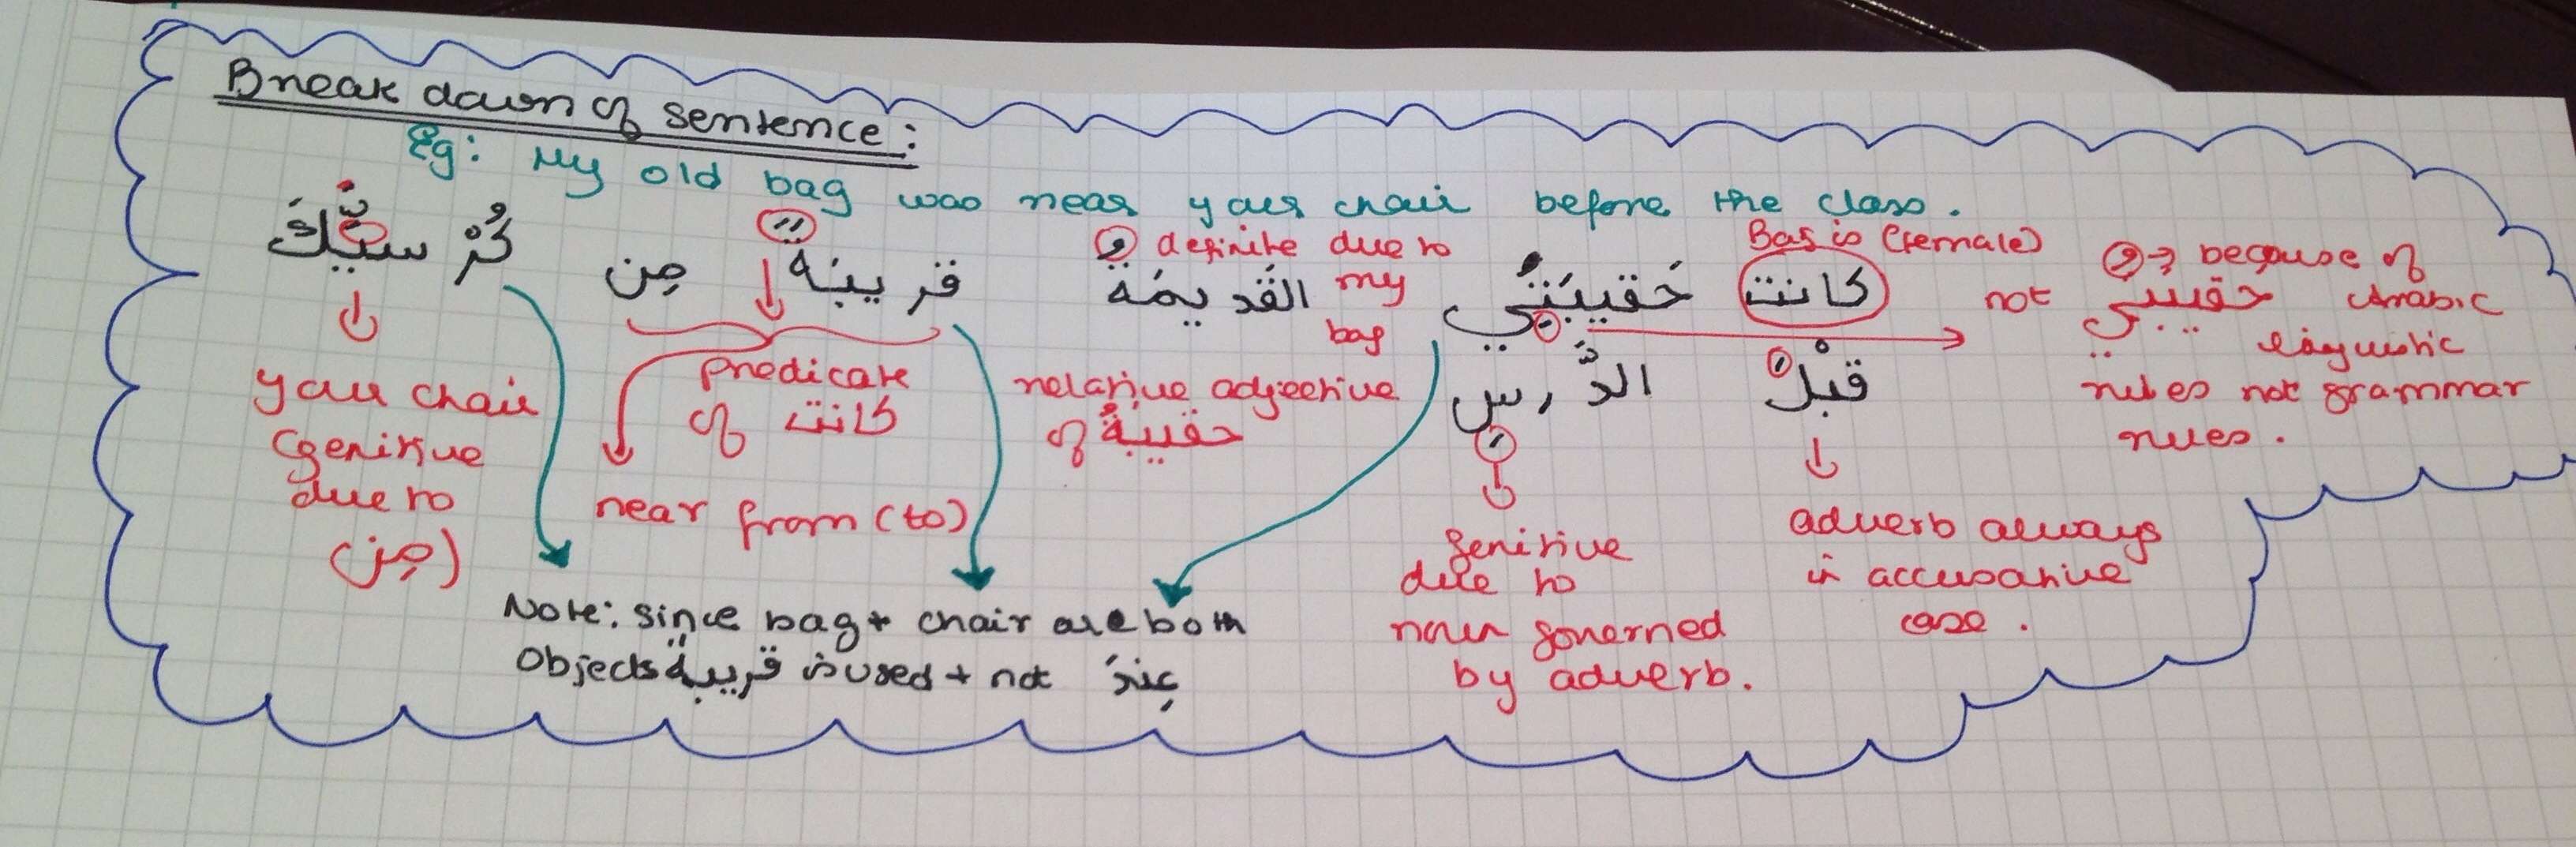 Break down of sentence:
Eg: My old bag was near your chair before the class.
كانت حَقيبَتِي القَديمَة قَريبَة مِن كُرْسيِّكَ
قبْلَ الدَّرسِ
Bag is (female)
definite due to
my
bag
not حقيبتي
because of
Arabic
linguistic
rules not grammar
rules.
relative adjective
of حقيبةٌ
predicate
of كانت
near from (to)
your chair
(genitive
due to
(مِن
genitive
due to
noun governed
by adverb.
adverb always
in accusative
case.
Note: since bag + chair are both
objects قريبةً is used + not عِندَ